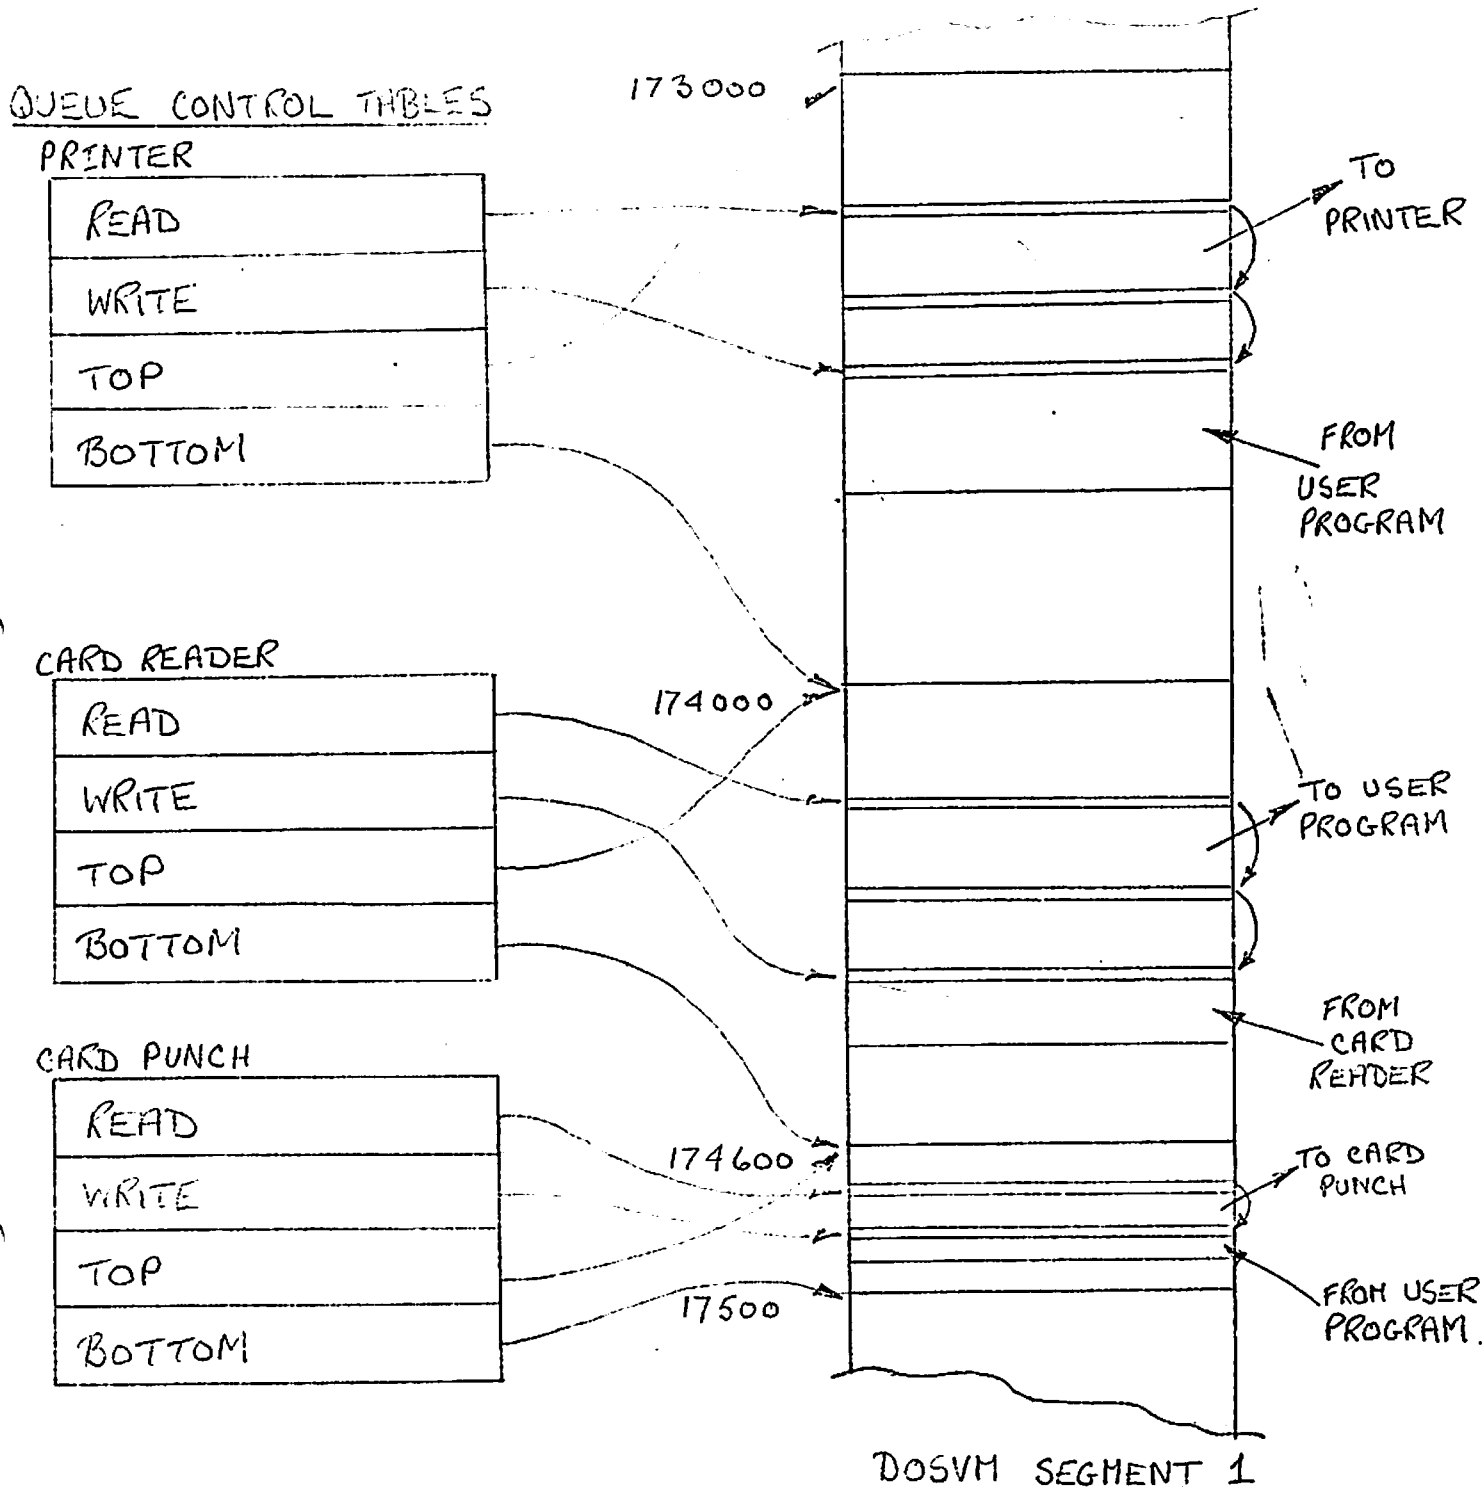 QUEUE CONTROL TABLES
PRINTER
READ
WRITE
TOP
BOTTOM
CARD READER
READ
WRITE
TOP
BOTTOM
CARD PUNCH
READ
WRITE
TOP
BOTTOM
173000
174000
174600
17500
TO
PRINTER
FROM
USER
PROGRAM
TO USER
PROGRAM
FROM
CARD
READER
TO CARD
PUNCH
FROM USER
PROGRAM.
DOSVM SEGMENT 1